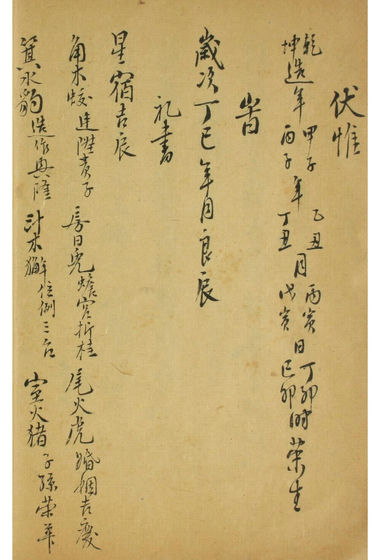 伏惟
乾
坤造年 甲子 丙子年 乙丑 丁丑月 丙寅 戊寅日 丁卯 己卯时 荣生
旹
歲次丁巳年月良辰
礼書
星宿吉辰
角木蛟進陞貴子 房日兔蟾宮折桂 尾火虎婚姻吉慶
箕水豹造作興隆 斗木獬位列三台 室火猪子孫荣華